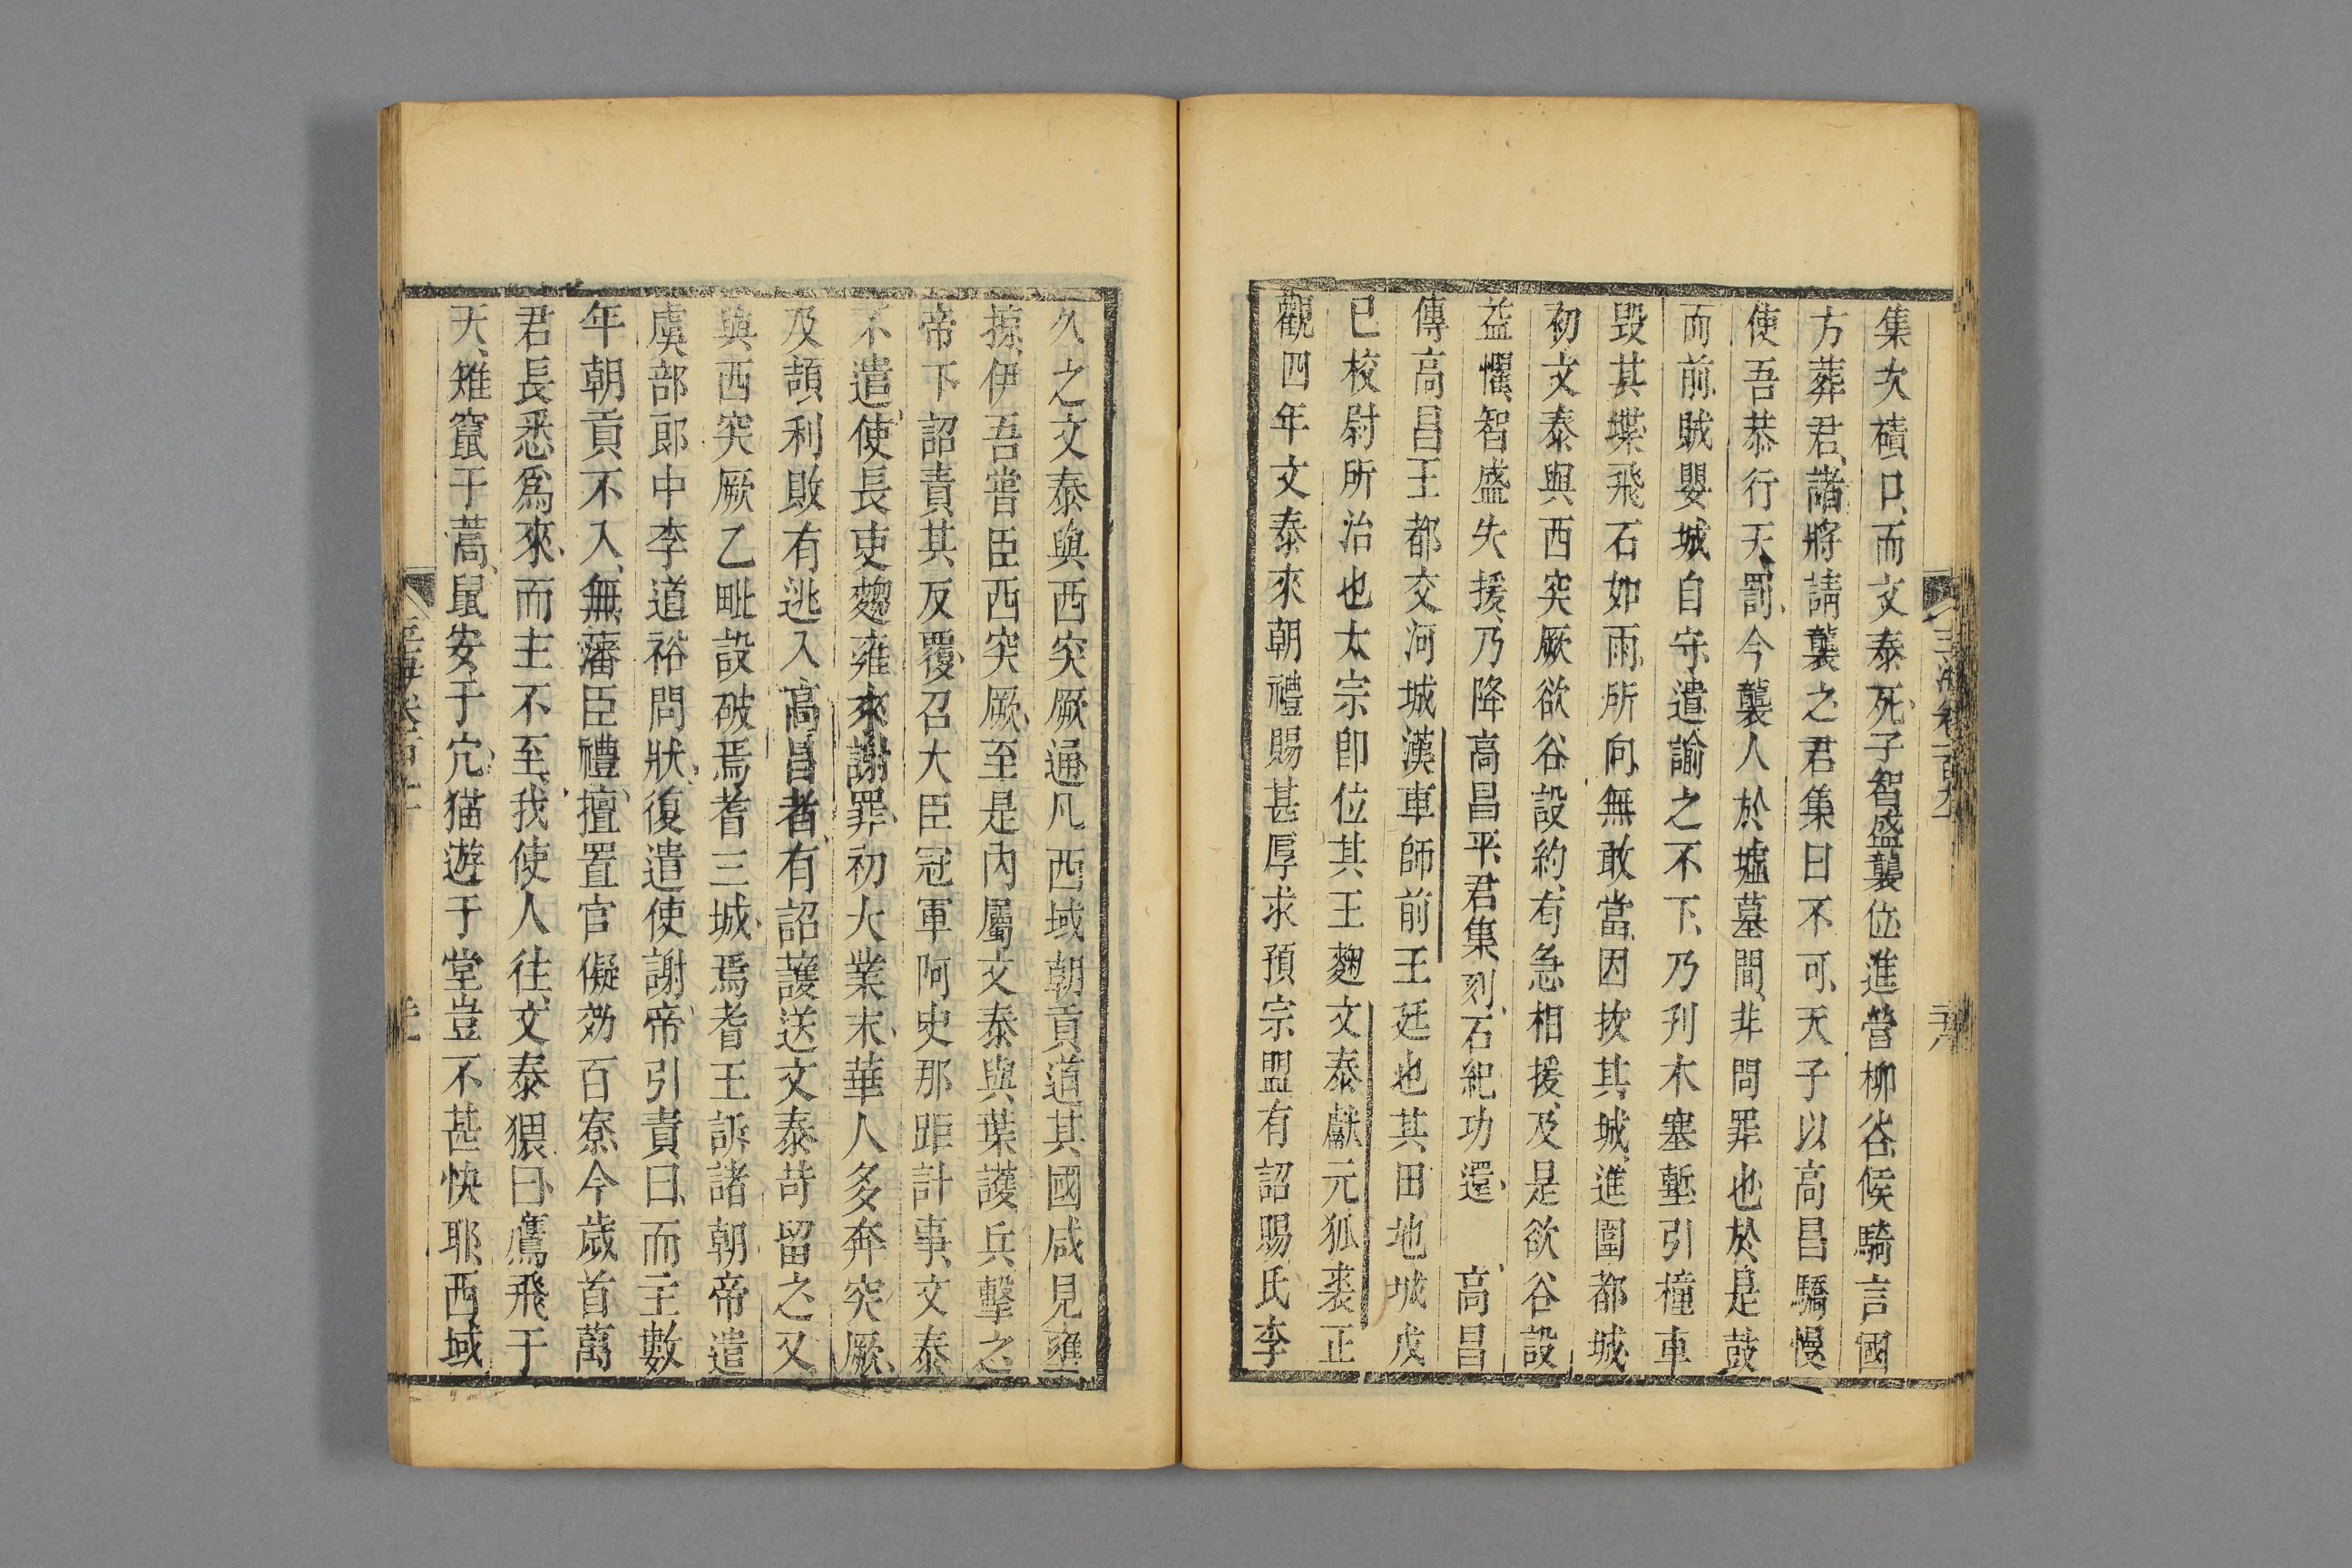 集次磧口而文泰死子智盛襲位進營柳谷候騎言國
方葬君諸將請襲之君集曰不可天子以高昌驕慢
使吾恭行天罰今襲人於墟墓間非問罪也於是鼓
而前賊嬰城自守遣諭之不下乃刋木塞塹引撞車
毀其堞飛石如雨所向無敢當因拔其城進圍都城
初文泰與西突厥欲谷設約有急相援及是欲谷設
益懼智盛失援乃降高昌平君集刻石紀功還 高昌
傳高昌王都交河城漢車師前王廷也其田地城戊
已校尉所治也太宗卽位其王麴文泰獻元狐裘正
觀四年文泰來朝禮賜甚厚求預宗盟有詔賜氏李
久之文泰與西突厥通凡西域朝貢道其國咸見壅
掠伊吾嘗臣西突厥至是內屬文泰與葉護兵擊之
帝下詔責其反覆召大臣冠軍阿史那距計事文泰
不遣使長吏麴雍來謝罪初大業末華人多奔突厥
及頡利敗有逃入高昌者有詔護送文泰苛留之又
與西突厥乙毗設破焉耆三城焉耆王訴諸朝帝遣
虞部郎中李道裕問狀復遣使謝帝引責曰而主數
年朝貢不入無藩臣禮擅置官儗効百寮今歲首萬
君長悉爲來而主不至我使人往文泰猥曰鷹飛于
天雉竄于蒿鼠安于穴猫遊于堂豈不甚快耶西域